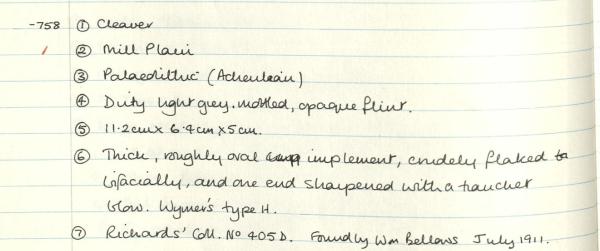 -758 ① Cleaver
② Mill Plain
③ Palaeolithic (Acheulean)
④ Dirty light grey, mottled, opaque flint.
⑤ 11.2cm x 6.4cm x 5cm.
⑥ Thick, roughly oval implement, crudely flaked
bifacially, and one end sharpened with a trancher
blow. Wymer's type H.
⑦ Richards' Coll. No 405D. Found by Wm Bellows July 1911.